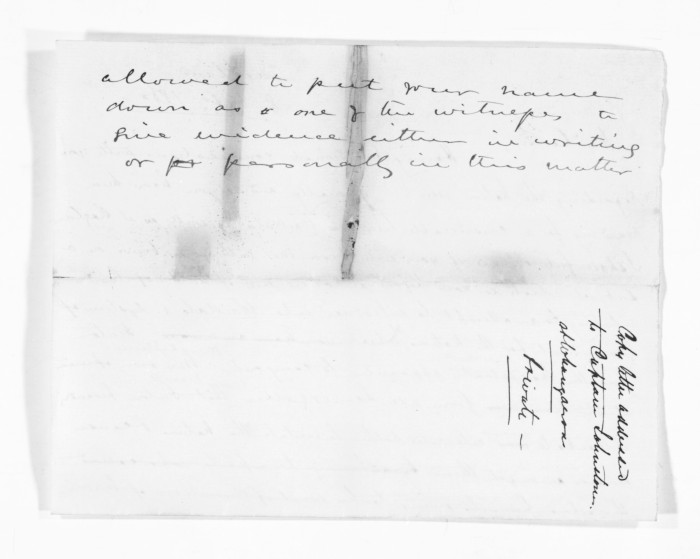 allowed to put your name
down as a one of the witnesses to
give evidence either in writing
or pr personally in this matter
Copy letter addressed
to Captain Johnstone.
at Whangaroa
Private –